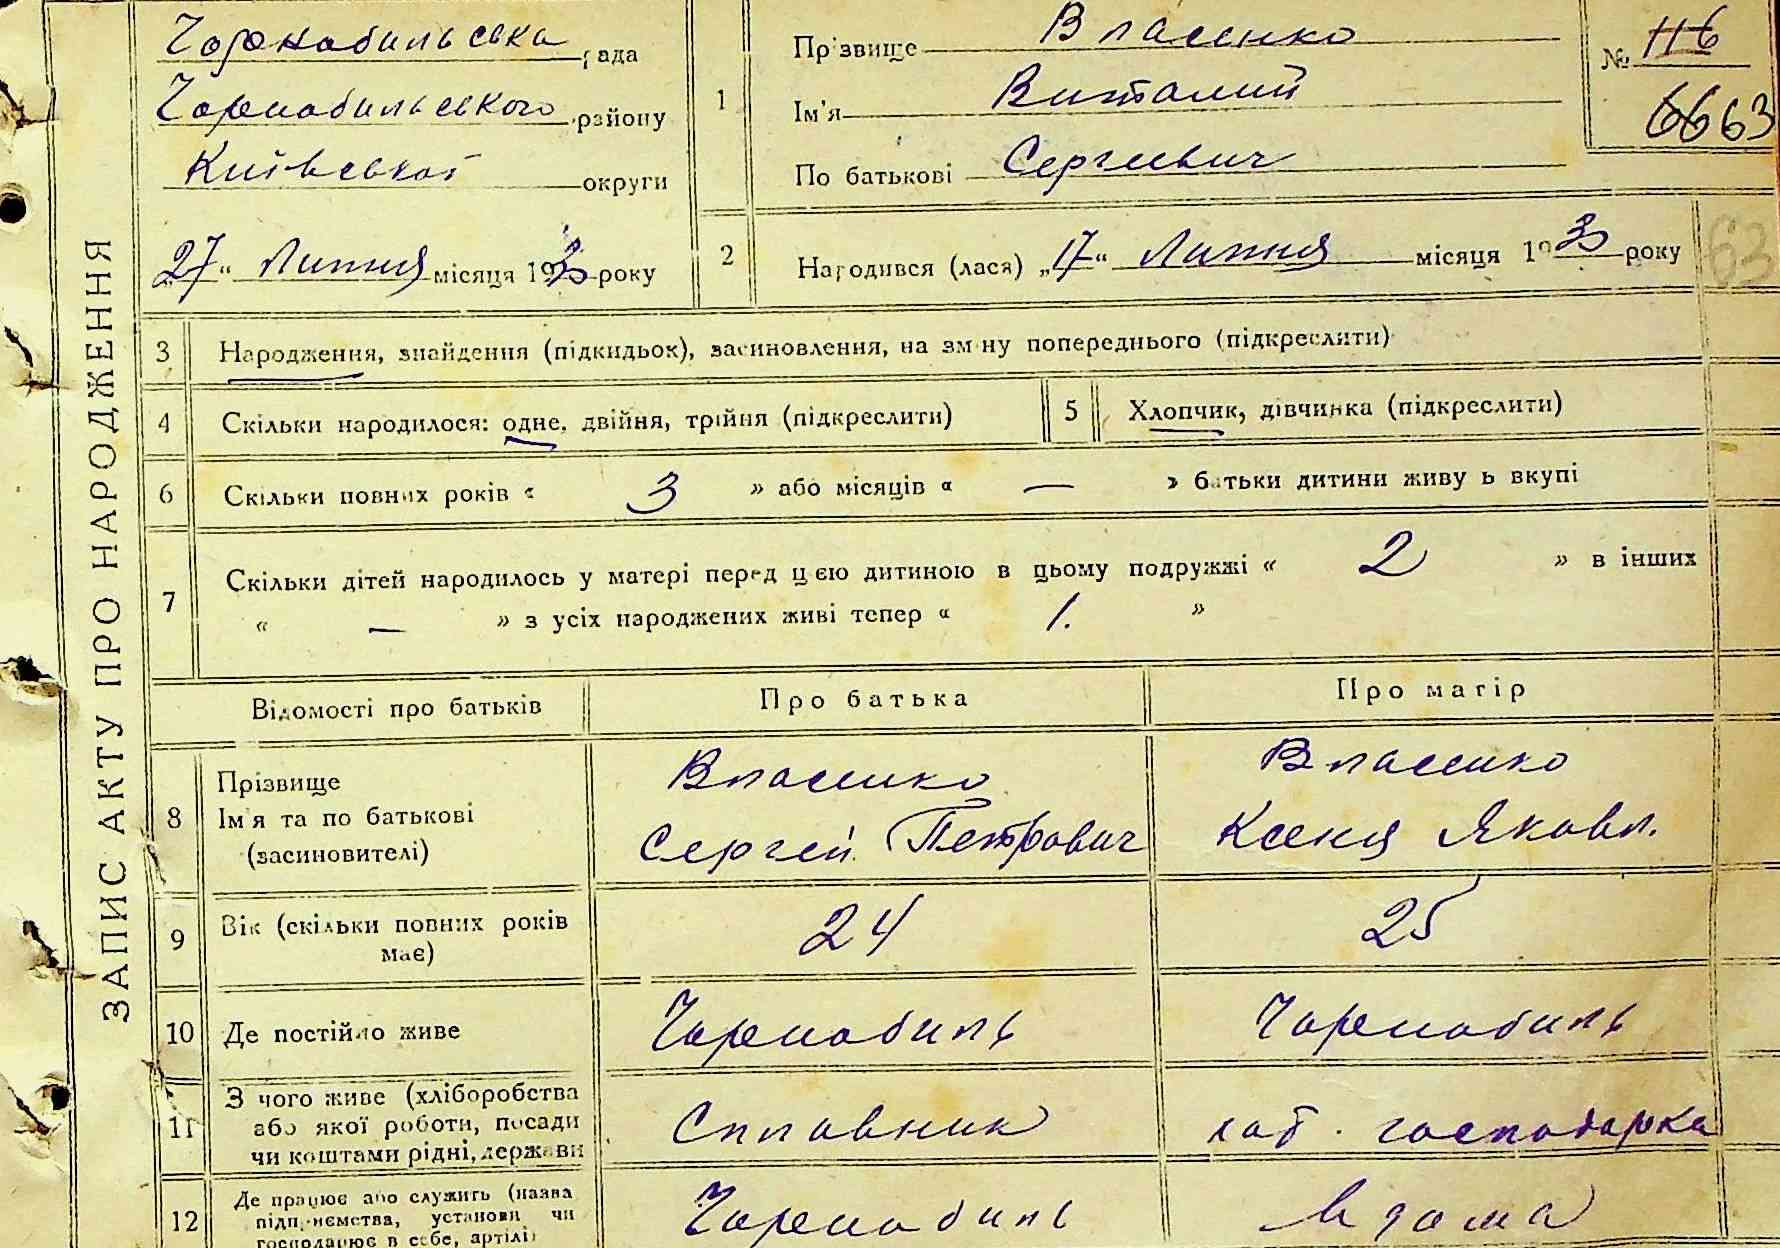 Чорнобильська рада
Чорнобильського району
Київської округи
„27“ Липня місяця 1930 року
1 Прізвище Власенко
Ім'я Виталий
По батькові Сергиевич
№ 116
6663
2 Народився (лася) „17“ Липня місяця 1930 року
63
ЗАПИС АКТУ ПРО НАРОДЖЕННЯ
3 Народження, знайдення (підкидьок), засиновлення, на зміну попереднього (підкреслити)
4 Скільки народилося: одне, двійня, трійня (підкреслити)
5 Хлопчик, дівчинка (підкреслити)
6 Скільки повних років « 3 » або місяців « — » батьки дитини живуть вкупі
7 Скільки дітей народилось у матері перед цією дитиною в цьому подружжі « 2 » в інших
« — » з усіх народжених живі тепер « 1. »
Відомості про батьків Про батька Про матір
8 Прізвище
Ім'я та по батькові
(засиновителі)
Власенко
Сергей Петрович
Власенко
Ксеня Яковл.
9 Вік (скільки повних років
має)
24
25
10 Де постійно живе Чорнобиль Чорнобиль
11 З чого живе (хліборобства
або якої роботи, посади
чи коштами рідні, держави
Сплавник
хат. господарка
12 Де працює або служить (назва
підприємства, установи чи
господарює в себе, артілі)
Чорнобиль
вдома